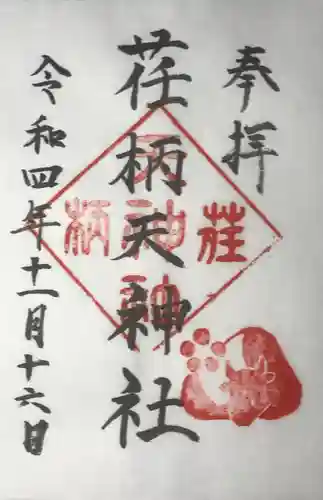 奉拝
荏柄天神社
令和四年十一月十六日
荏
柄